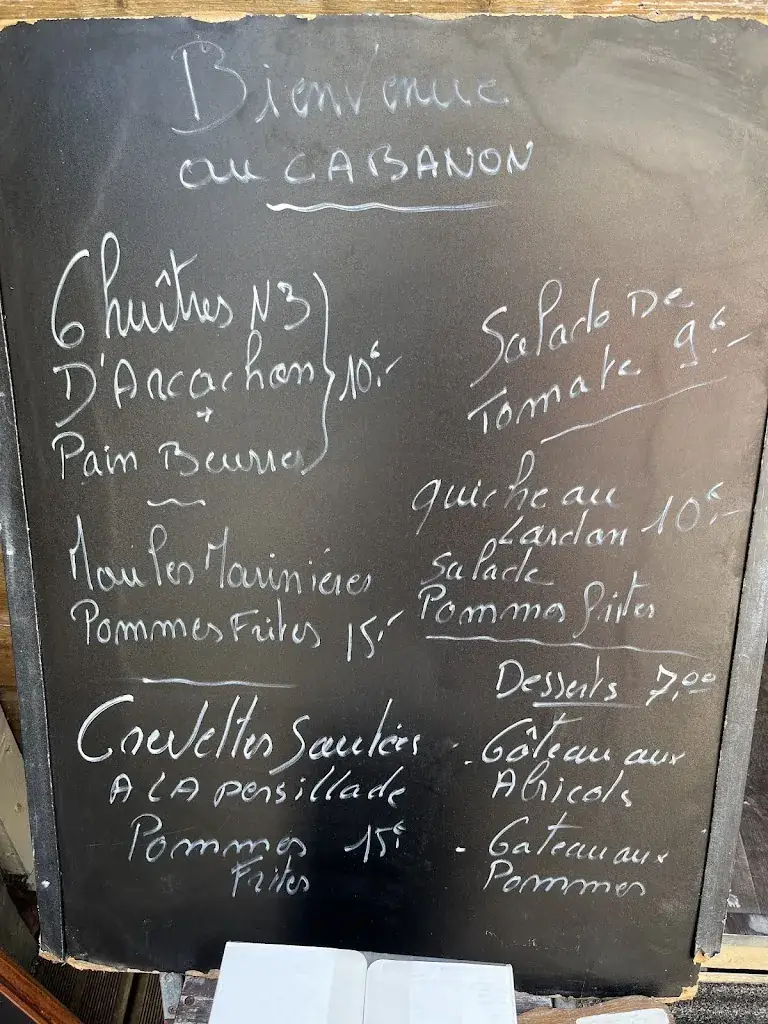 Bienvenue
au CABANON
6 huîtres N3
D'Arcachon
+
Pain Beurre
10€.-
Moules Marinières
Pommes Frites 15.-
Crevettes Sautées
A LA persillade
Pommes 15€
Frites
Salade De
Tomate 9€.-
quiche au
Lardon 10€.-
Salade
Pommes frites
Desserts 7,00
- Gâteau aux
Abricots
- Gateau aux
Pommes